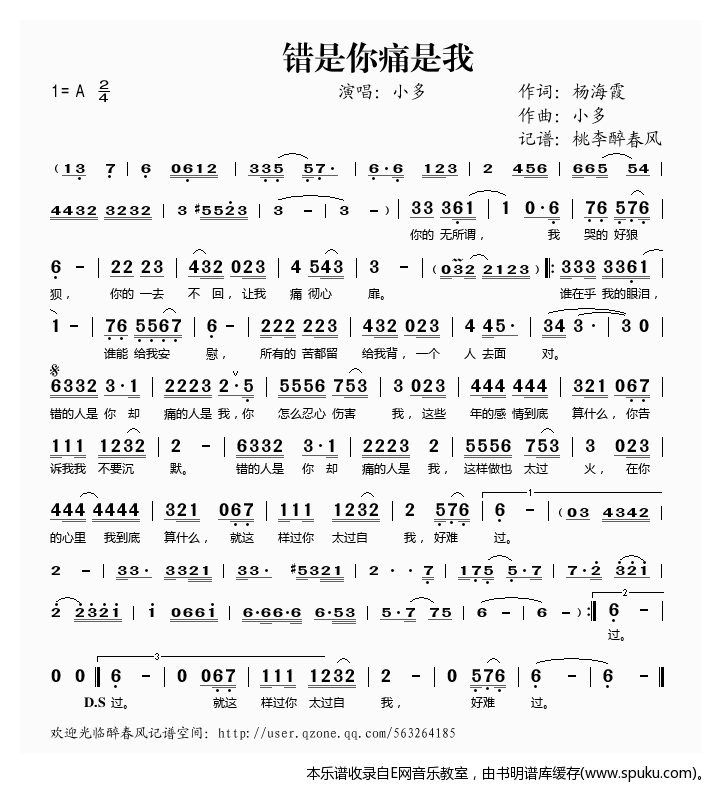 错是你痛是我
1= A 2/4 演唱：小多 作词：杨海霞
作曲：小多
记谱：桃李醉春风
( 13 7 | 6 0612 | 335 57· | 6·6 123 | 2 456 | 665 54 |
4432 3232 | 3 #5523 | 3 - | 3 - ) | 33 361 | 1 0·6 | 76 576 |
你的 无所谓， 我 哭的 好狼
6 - | 22 23 | 432 023 | 4 543 | 3 - | (032 2123) ‖: 333 3361 |
狈， 你的 一去 不 回，让我 痛 彻心 扉。 谁在乎 我的眼泪，
1 - | 76 5567 | 6 - | 222 223 | 432 023 | 4 45· | 34 3· | 3 0
谁能 给我安 慰， 所有的 苦都留 给我背，一个 人 去面 对。
6332 3·1 | 2223 2·5 | 5556 753 | 3 023 | 444 444 | 321 067 |
错的人是 你 却 痛的人是 我，你 怎么忍心 伤害 我，这些 年的感 情到底 算什么，你告
111 1232 | 2 - | 6332 3·1 | 2223 2 | 5556 753 | 3 023
诉我我 不要沉 默。 错的人是 你 却 痛的人是 我，这样做也 太过 火，在你
444 4444 | 321 067 | 111 1232 | 2 576 | 1 6 - | (03 4342 |
的心里 我到底 算什么，就这 样过你 太过自 我，好难 过。
2 - | 33· 3321 | 33· #5321 | 2 · · 7 | 175 5·7 | 7·2 321 |
2 2321 | 1 0661 | 6·66·6 6·53 | 5·7 75 | 6 - | 6 - ) :‖ 2 6 - |
过。
0 0 ‖ 3 6 - | 0 067 | 111 1232 | 2 - | 0 576 | 6 - | 6 - ‖
D.S 过。 就这 样过你 太过自 我， 好难 过。
欢迎光临醉春风记谱空间：http://user.qzone.qq.com/563264185
本乐谱收录自E网音乐教室，由书明谱库缓存(www.spuku.com)。